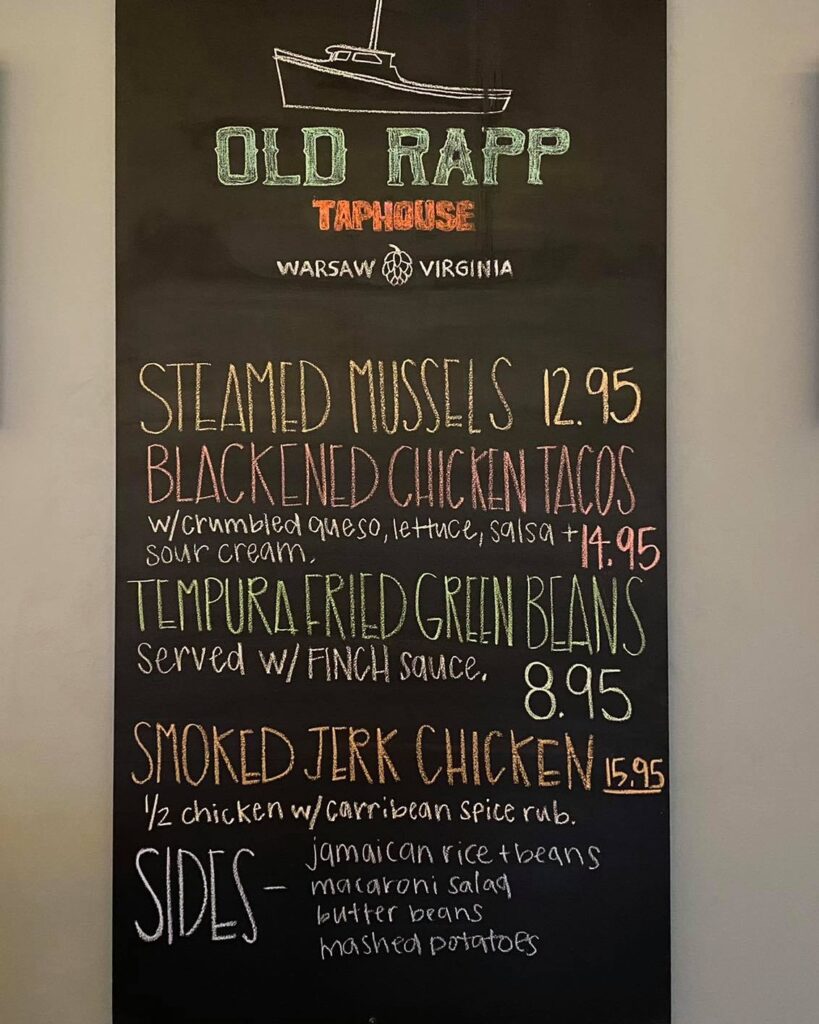 OLD RAPP
TAPHOUSE
WARSAW VIRGINIA
STEAMED MUSSELS 12.95
BLACKENED CHICKEN TACOS
w/crumbled queso, lettuce, salsa + 14.95
sour cream.
TEMPURA FRIED GREEN BEANS
served w/ FINCH sauce.
8.95
SMOKED JERK CHICKEN 15.95
1/2 chicken w/carribean spice rub.
SIDES - jamaican rice + beans
macaroni salad
butter beans
mashed potatoes